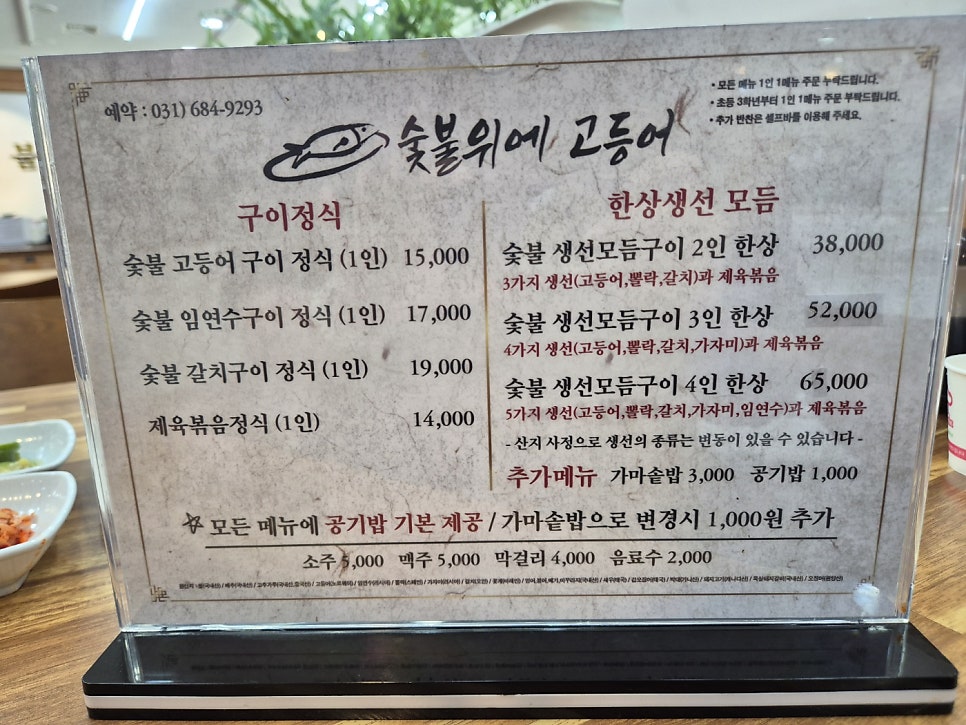 예약 : 031) 684-9293
• 모든 메뉴 1인 1메뉴 주문 부탁드립니다.
• 초등 3학년부터 1인 1메뉴 주문 부탁드립니다.
• 추가 반찬은 셀프바를 이용해 주세요.
숯불위에 고등어
구이정식
숯불 고등어 구이 정식 (1인) 15,000
숯불 임연수구이 정식 (1인) 17,000
숯불 갈치구이 정식 (1인) 19,000
제육볶음정식 (1인) 14,000
한상생선 모듬
숯불 생선모듬구이 2인 한상 38,000
3가지 생선(고등어,뽈락,갈치)과 제육볶음
숯불 생선모듬구이 3인 한상 52,000
4가지 생선(고등어,뽈락,갈치,가자미)과 제육볶음
숯불 생선모듬구이 4인 한상 65,000
5가지 생선(고등어,뽈락,갈치,가자미,임연수)과 제육볶음
- 산지 사정으로 생선의 종류는 변동이 있을 수 있습니다 -
추가메뉴 가마솥밥 3,000 공기밥 1,000
☆ 모든 메뉴에 공기밥 기본 제공 / 가마솥밥으로 변경시 1,000원 추가
소주 5,000 맥주 5,000 막걸리 4,000 음료수 2,000